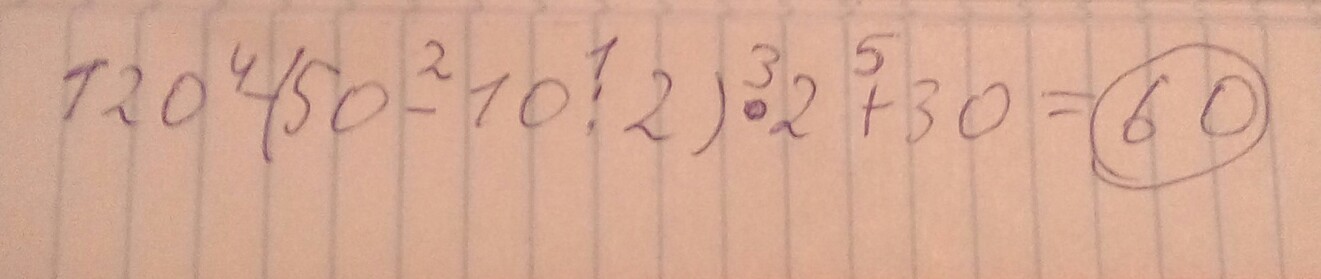 120⁴-(50²-10¹:2)³·2⁵+30=60